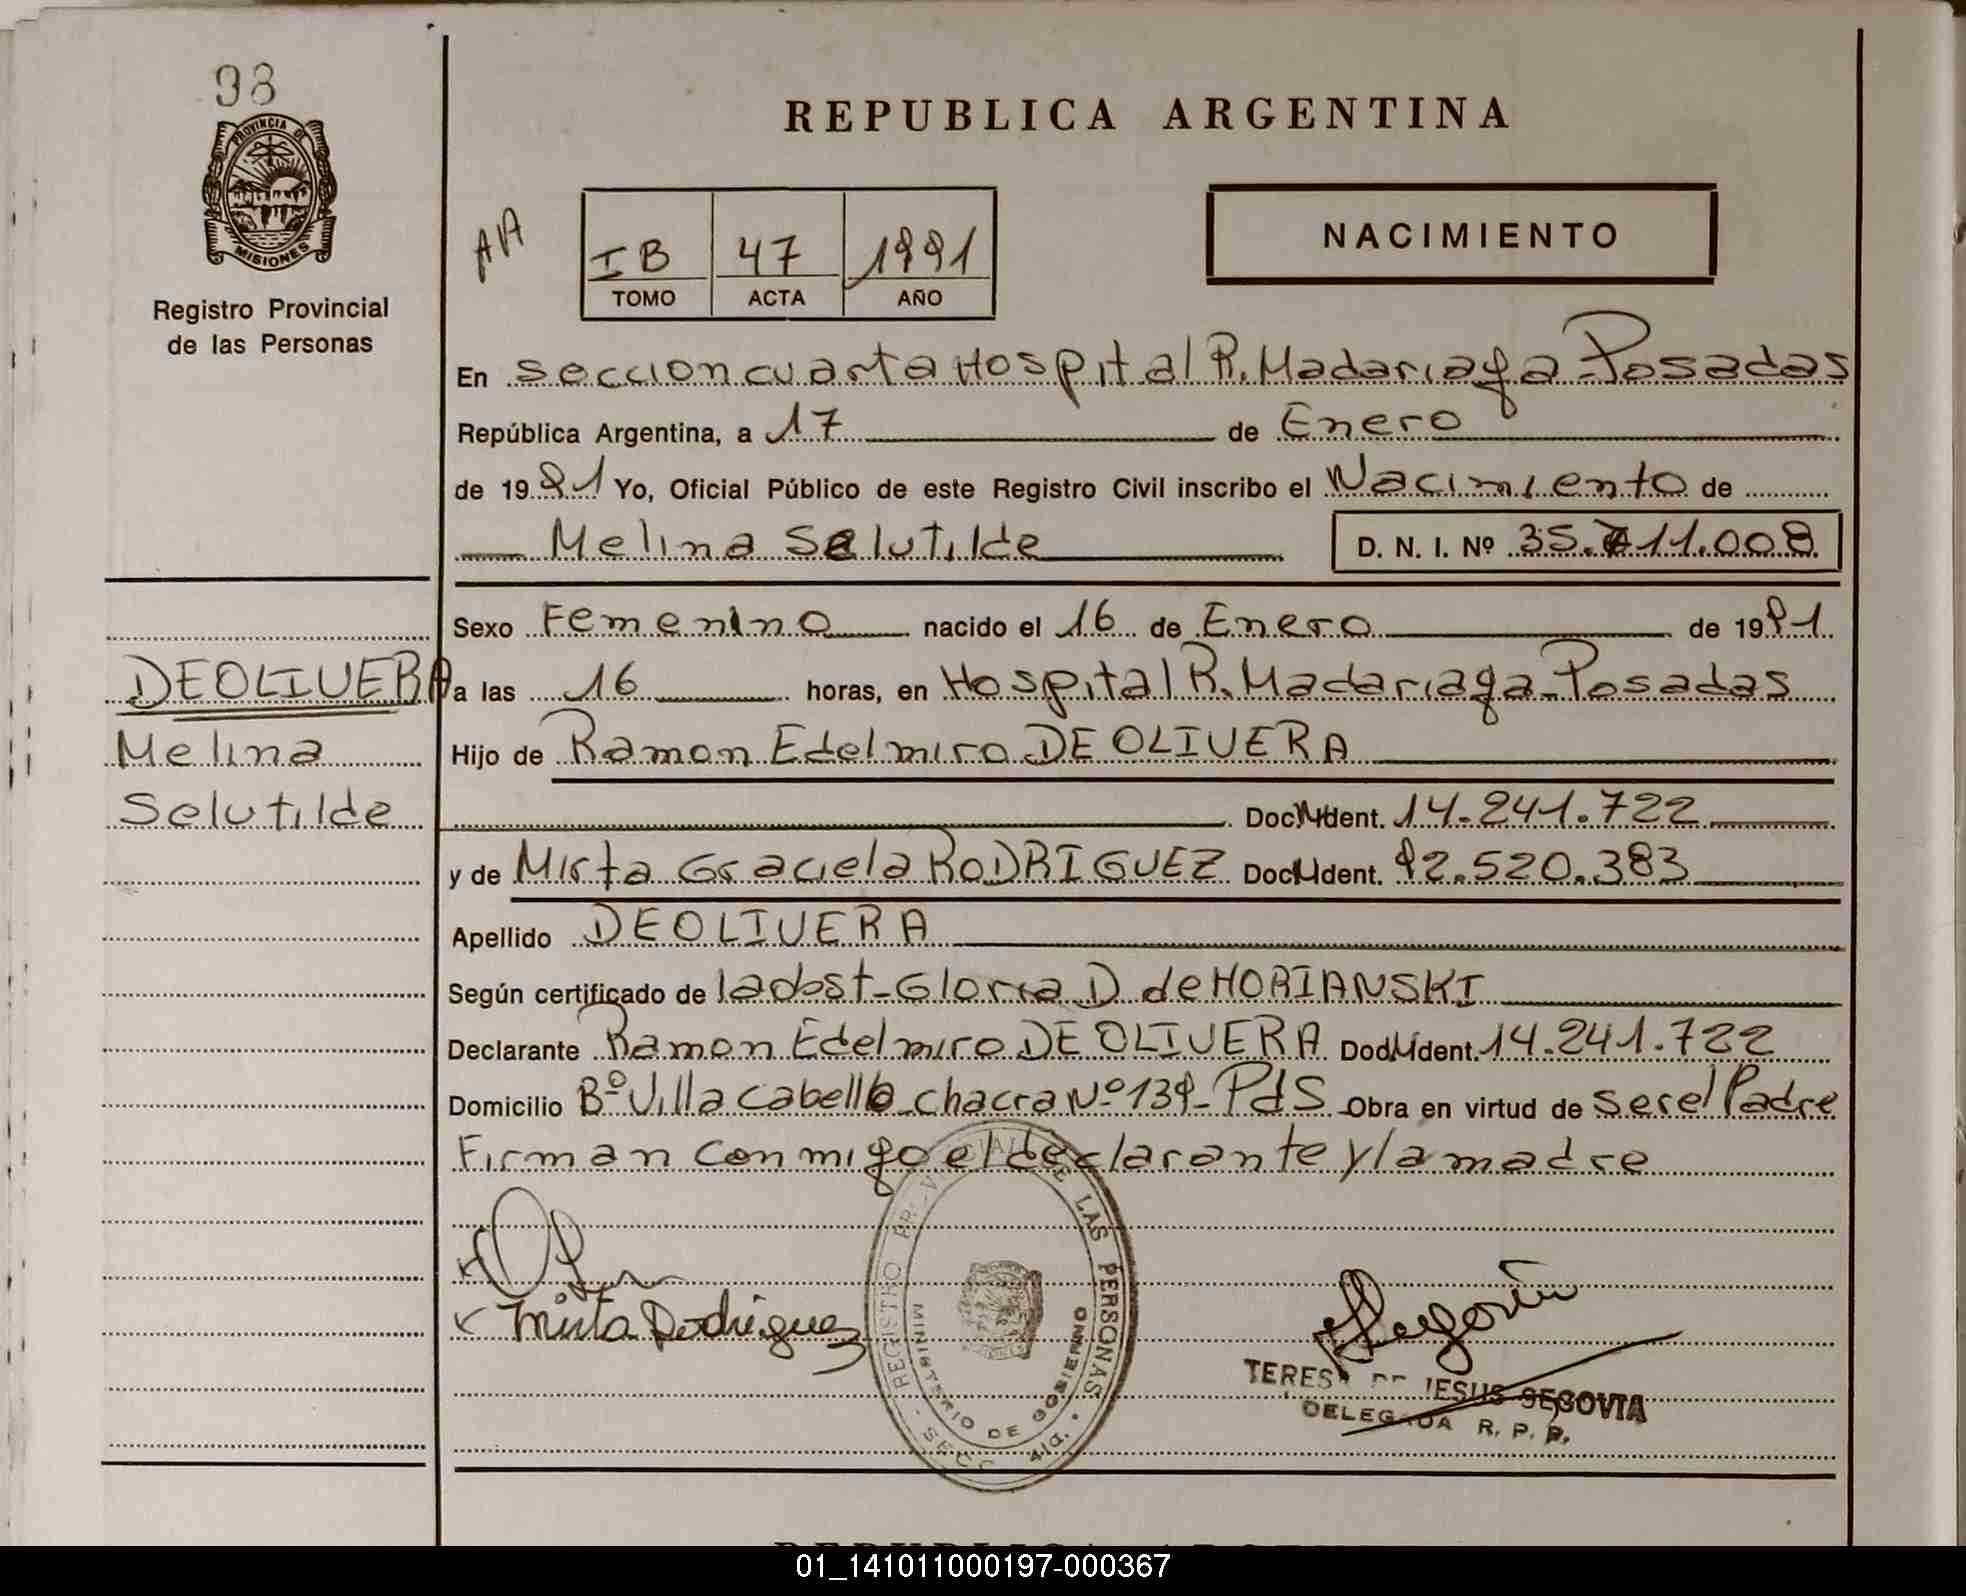 98
PROVINCIA DE
MISIONES
Registro Provincial
de las Personas
REPUBLICA ARGENTINA
AA
IB 47 1991
TOMO ACTA AÑO
NACIMIENTO
En Seccion cuarta Hospital R. Madariaga - Posadas
República Argentina, a 17 de Enero
de 1991 Yo, Oficial Público de este Registro Civil inscribo el Nacimiento de
Melina Selutilde D. N. I. Nº 35.711.008
Sexo Femenino nacido el 16 de Enero de 1991
DEOLIVERA
a las 16 horas, en Hospital R. Madariaga - Posadas
Melina
Hijo de Ramon Edelmiro DE OLIVERA
Selutilde
Doc. Ident. 14.241.722
y de Mirta Graciela RODRIGUEZ Doc. Ident. 92.520.383
Apellido DEOLIVERA
Según certificado de la obst - Gloria D de HORIANSKI
Declarante Ramon Edelmiro DE OLIVERA Doc. Ident. 14.241.722
Domicilio Bº Villa Cabello - chacra Nº 139 - Pds Obra en virtud de ser el Padre
Firman conmigo el declarante y la madre
Mirta Rodriguez
REGISTRO PROVINCIAL DE LAS PERSONAS
MINISTERIO DE GOBIERNO
SECC. 4ta.
TERESA DE JESUS SEGOVIA
DELEGADA R. P. P.
REPUBLICA ARGENTINA
01_141011000197-000367